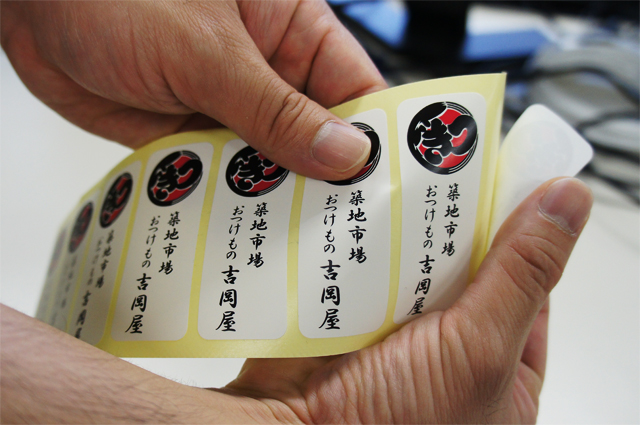 築地市場
おつけもの
吉岡屋
築地市場
おつけもの
吉岡屋
築地市場
おつけもの
吉岡屋
築地市場
おつけもの
吉岡屋
築地市場
おつけもの
吉岡屋